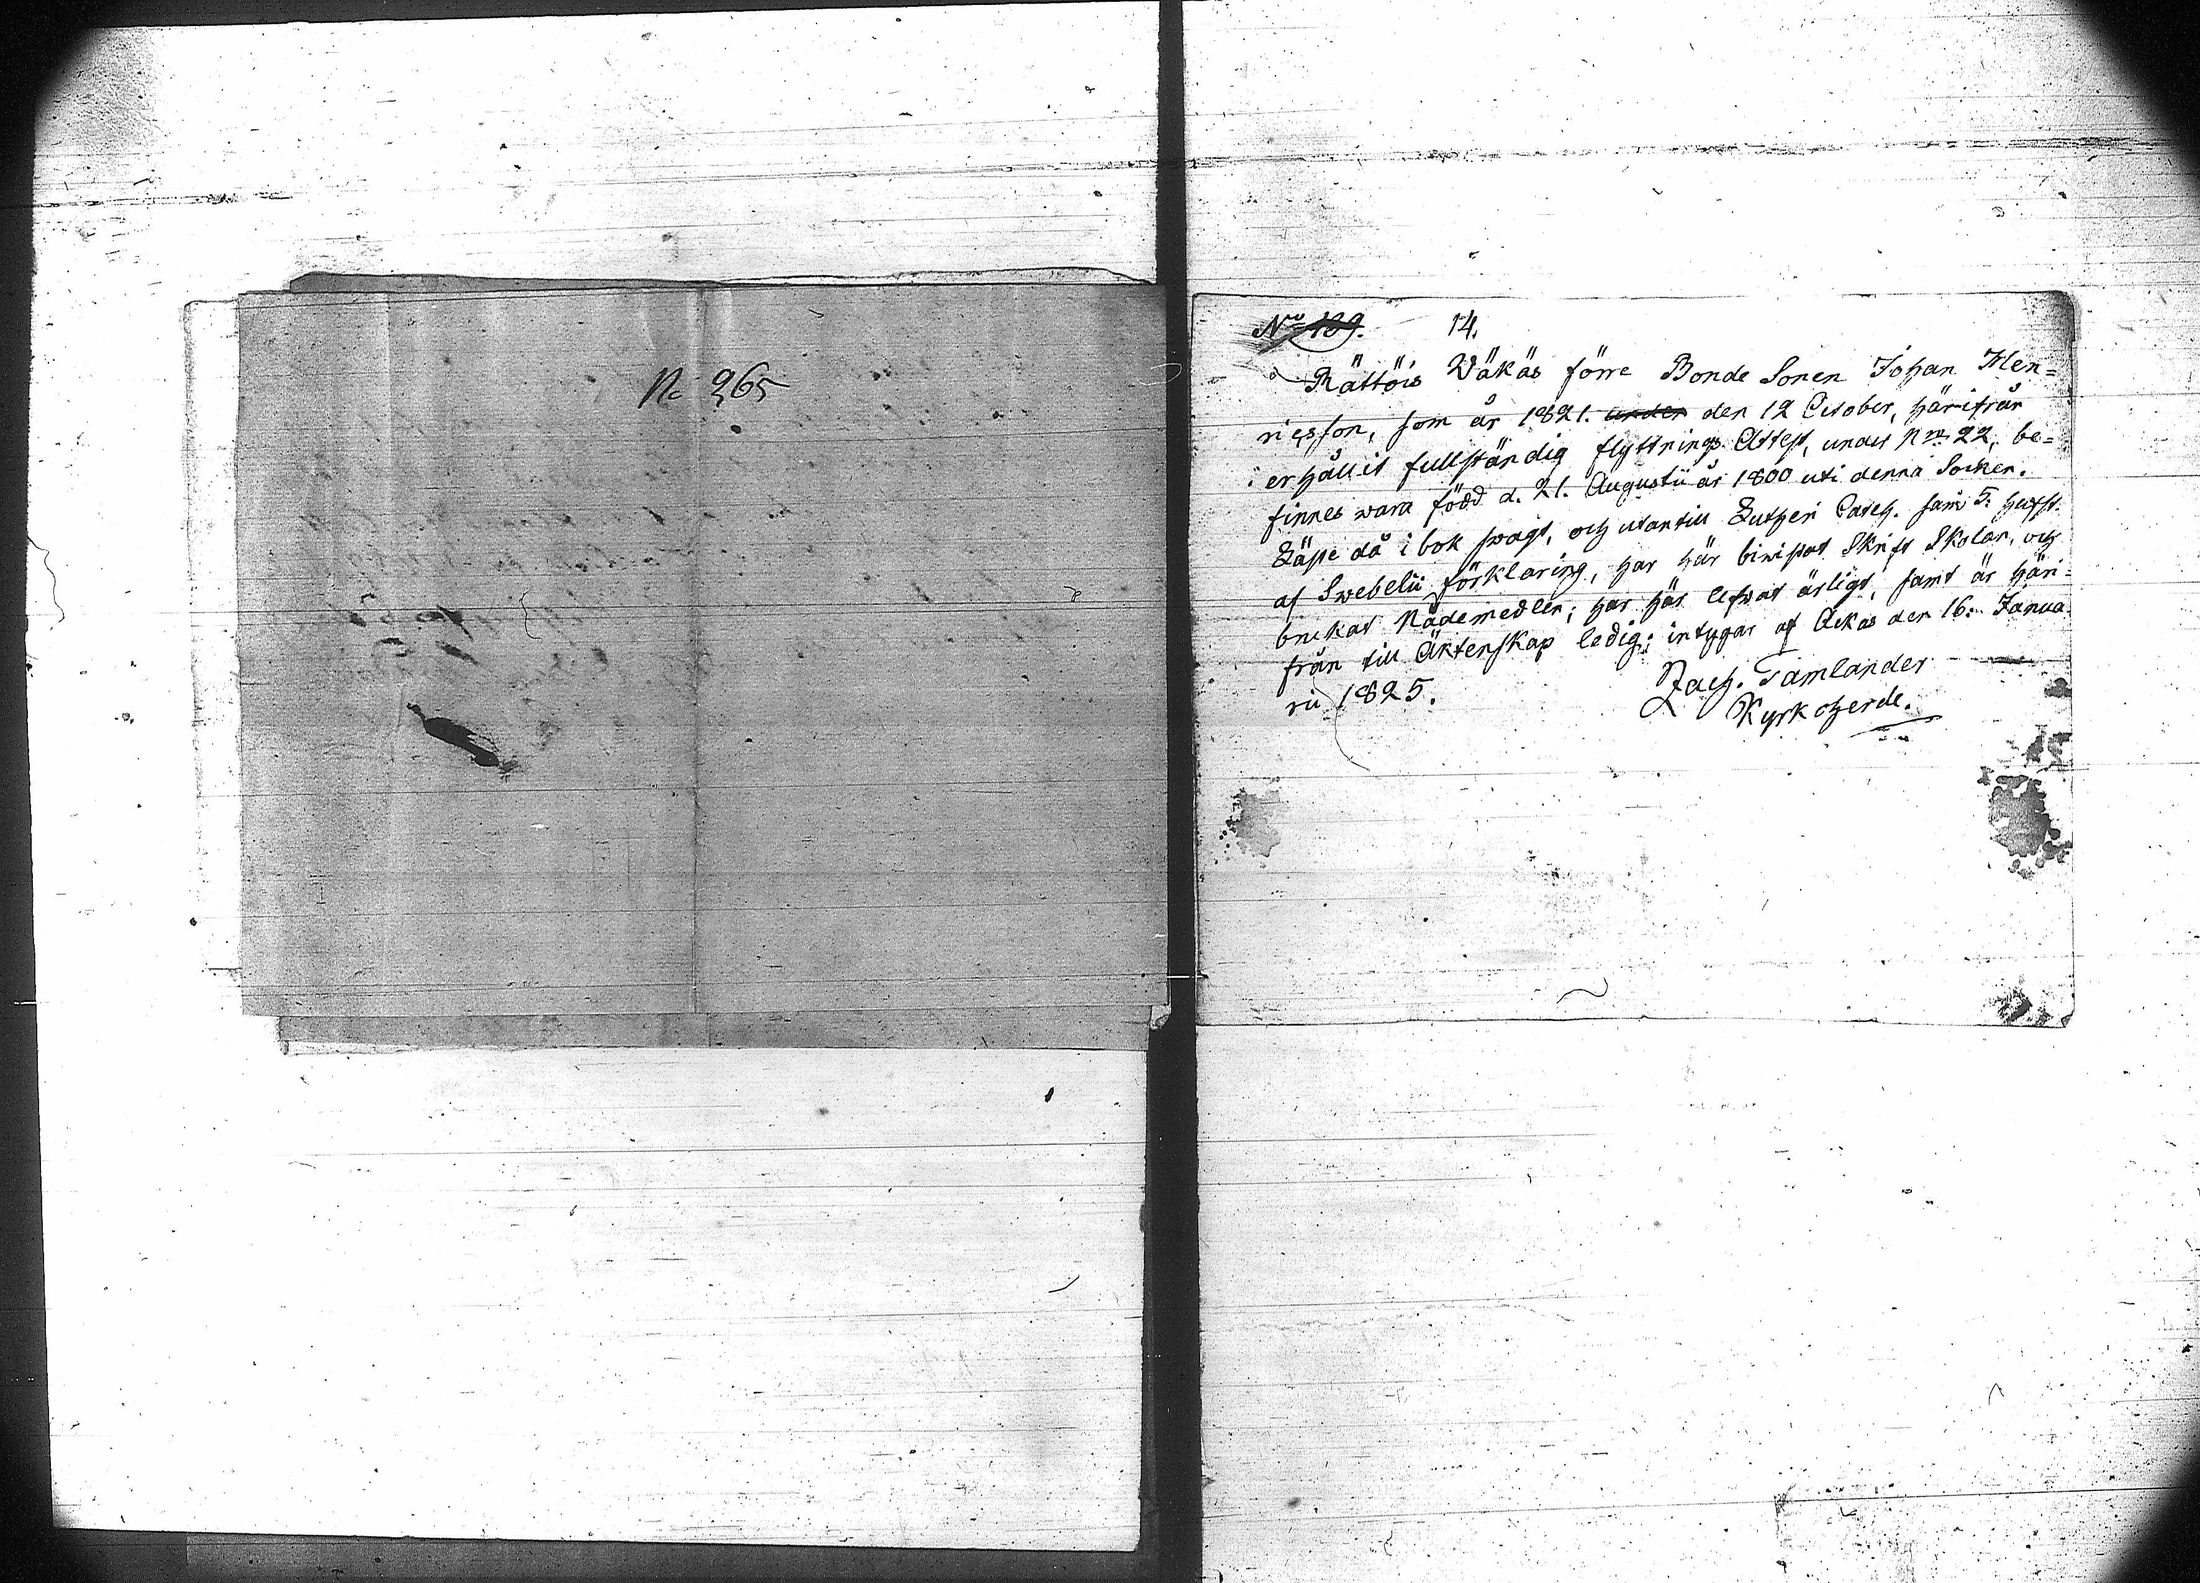 No 265
No 139. 14.
Rättöis Wäkäs förre Bonde Sonen Johan Hen=
ricsson, som år 1821. under den 12 October, härifrån
erhållit fullständig flyttnings Attest, under No 22, be=
finnes wara född d. 21. Augustii år 1800 uti denna Socken.
Läste då i bok swagt, och utantill Lutheri Catech. samt 5. hufst.
af Swebelii förklaring, har här biwistat Skrift Skolan, och
brukat Nådemedlen; har här lefwat ärligt, samt är häri=
från till Äktenskap ledig; intygar af Ackas den 16. Janua
rii 1825.
Zach. Tamlander
Kyrkoherde.